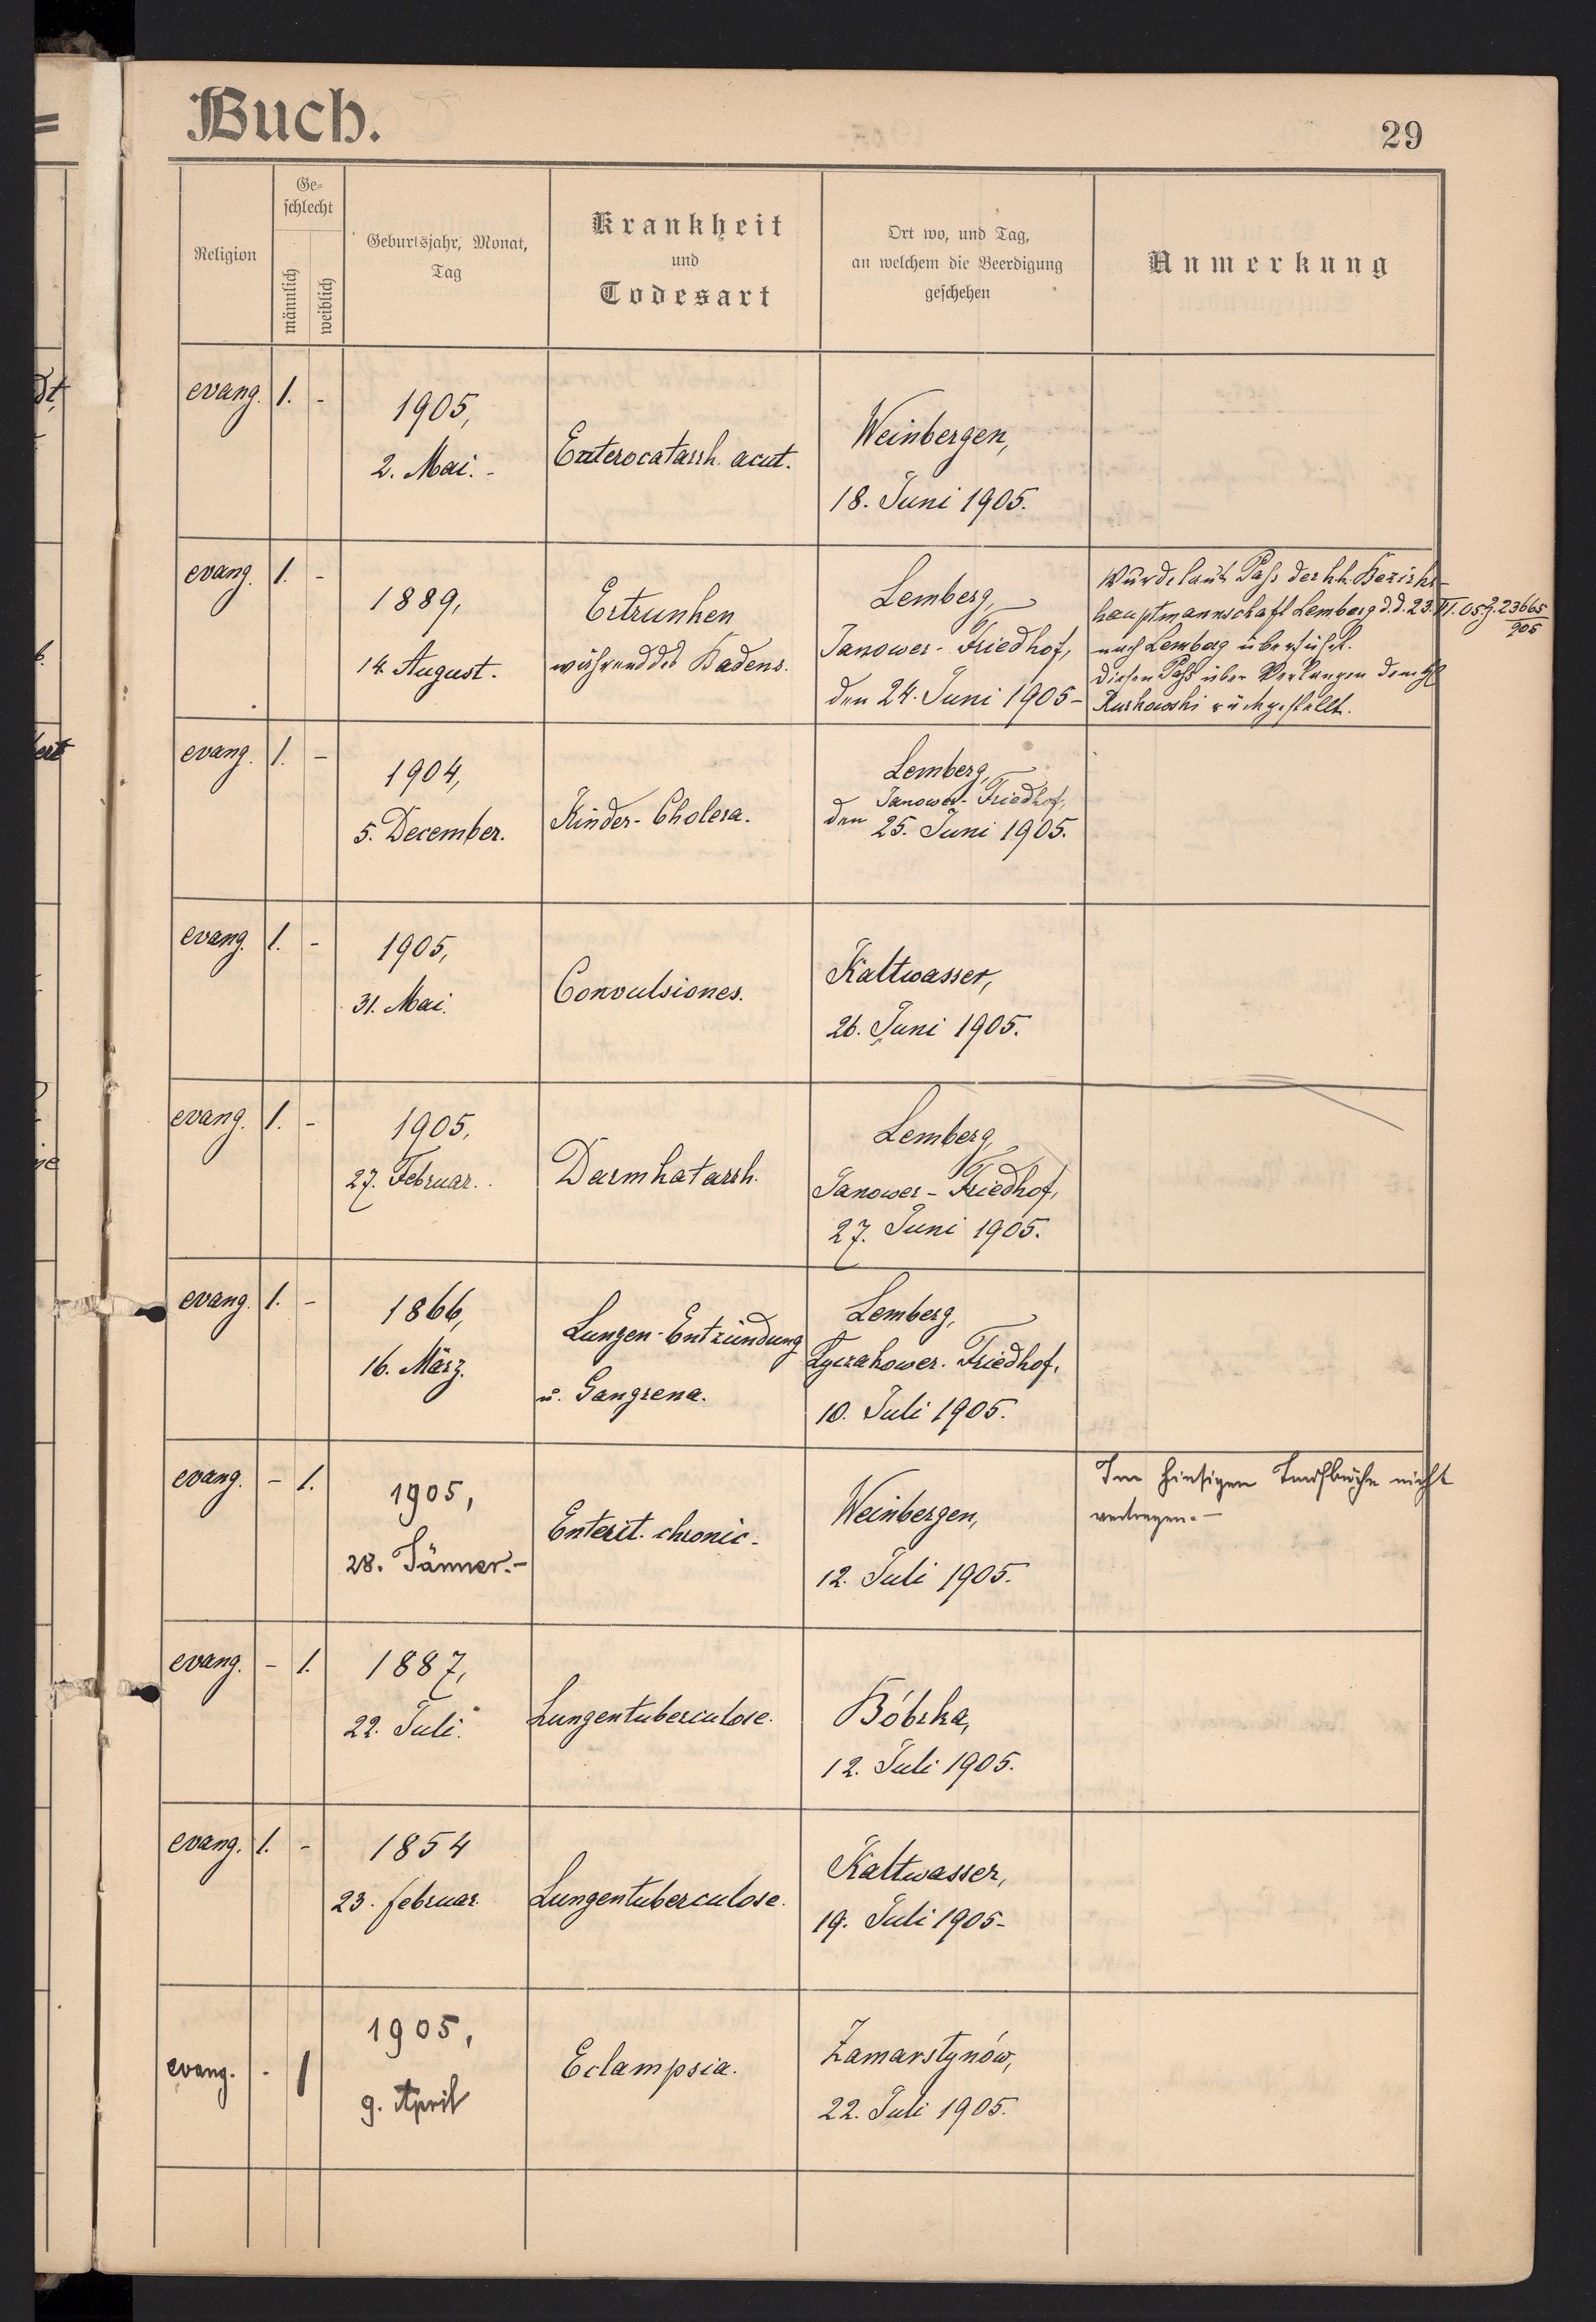 Buch.
29
Religion
Ge-
schlecht
männlich
weiblich
Geburtsjahr, Monat,
Tag
Krankheit
und
Todesart
Ort wo, und Tag,
an welchem die Beerdigung
geschehen
Anmerkung
evang. 1. -
1905,
2. Mai. -
Enterocatarrh. acut.
Weinbergen,
18. Juni 1905.
evang. 1. -
1889,
14. August.
Ertrunken
während des Badens.
Lemberg,
Janower-Friedhof,
den 24. Juni 1905-
Wurde laut Pass der k.k. Bezirks-
hauptmannschaft Lemberg d.d. 23. VI. 05. Z. 23665/905
nach Lemberg überführt.
Diesen Pass über Verlangen dem
rückgestellt.
evang. 1. -
1904,
5. December.
Kinder-Cholera.
Lemberg,
Janower-Friedhof,
den 25. Juni 1905.
evang. 1. -
1905,
31. Mai.
Convulsiones.
Kaltwasser,
26. Juni 1905.
evang. 1. -
1905,
27. Februar.
Darmkatarrh.
Lemberg,
Janower-Friedhof,
27. Juni 1905.
evang. 1. -
1866,
16. März.
Lungen-Entzündung
u. Gangrena.
Lemberg,
Lyczakower-Friedhof,
10. Juli 1905.
evang. - 1.
1905,
28. Jänner.-
Enterit. chronic.
Weinbergen,
12. Juli 1905.
Im hiesigen Taufbuche nicht
vertragen.-
evang. - 1.
1887,
22. Juli.
Lungentuberculose.
Bóbrka,
12. Juli 1905.
evang. 1. -
1854
23. februar.
Lungentuberculose.
Kaltwasser,
19. Juli 1905-
evang. - 1
1905,
9. April
Eclampsia.
Zamarstynów,
22. Juli 1905.